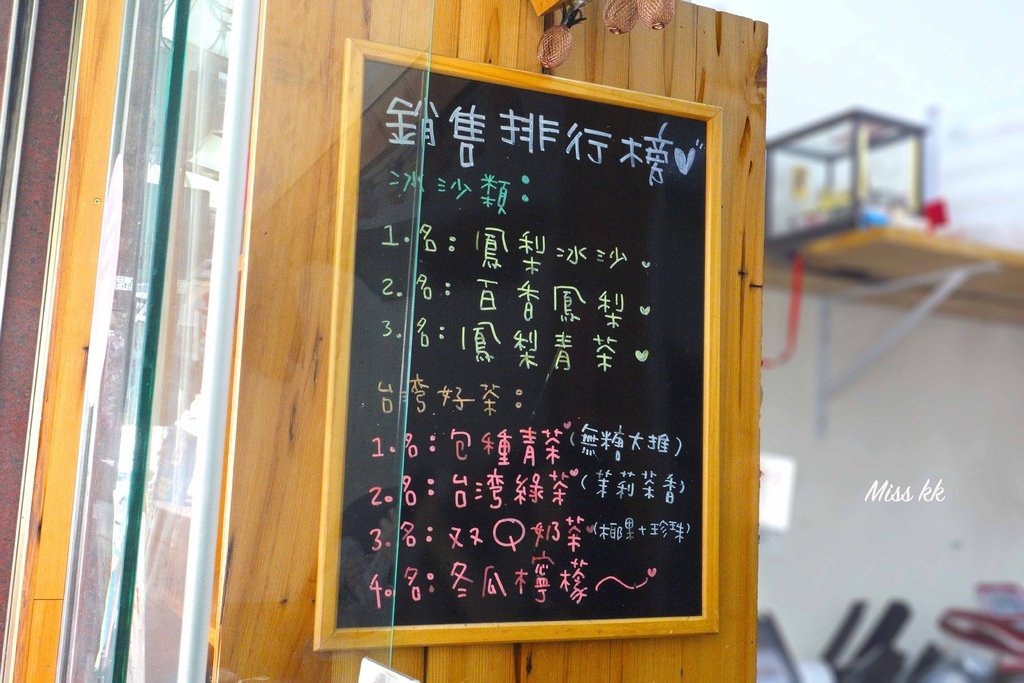 銷售排行榜
冰沙類：
1.名：鳳梨冰沙
2.名：百香鳳梨
3.名：鳳梨青茶
台灣好茶：
1.名：包種青茶（無糖大推）
2.名：台灣綠茶（茉莉茶香）
3.名：双双Q奶茶（椰果+珍珠）
4.名：冬瓜檸檬
Miss kk